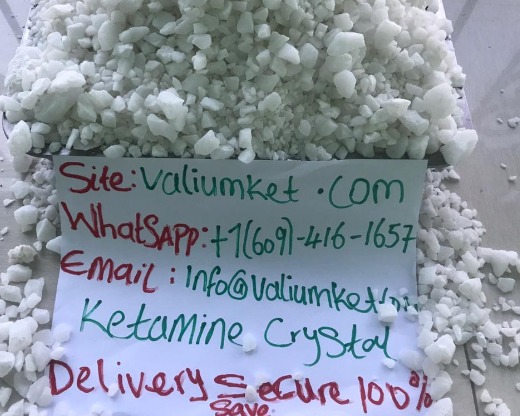 Site: Valiumket.com
WhatsApp: +1(609)-416-1657
Email: Info@Valiumket
Ketamine Crystal
Delivery Secure 100%
Save